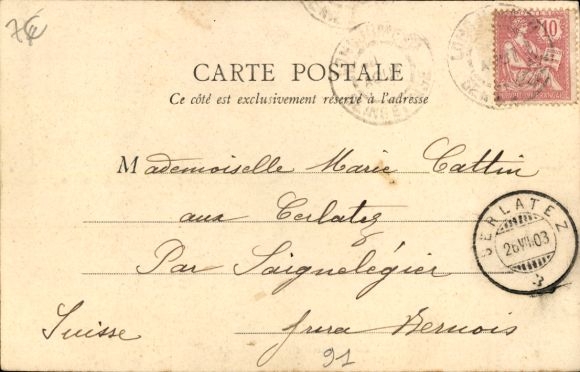 7€
10
CARTE POSTALE
Ce côté est exclusivement réservé à l'adresse
Mademoiselle Marie Cattin
aux Cerlatez
Par Saignelégier
Suisse Jura Bernois
CERLATEZ
26.VII.03
91